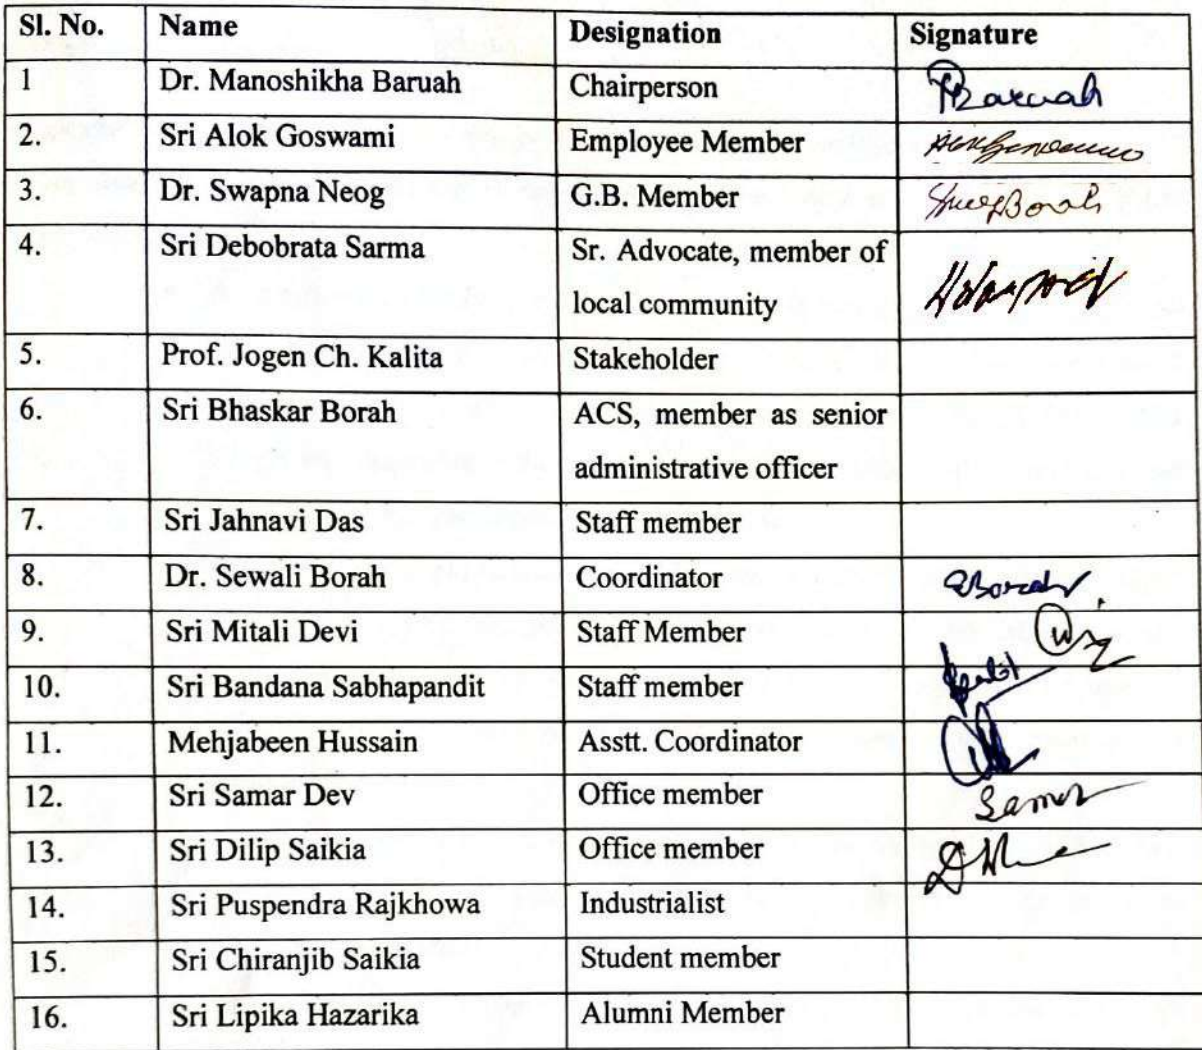 Sl. No. Name Designation Signature
1 Dr. Manoshikha Baruah Chairperson Baruah
2. Sri Alok Goswami Employee Member
3. Dr. Swapna Neog G.B. Member Borah
4. Sri Debobrata Sarma Sr. Advocate, member of
local community
5. Prof. Jogen Ch. Kalita Stakeholder
6. Sri Bhaskar Borah ACS, member as senior
administrative officer
7. Sri Jahnavi Das Staff member
8. Dr. Sewali Borah Coordinator SBorah
9. Sri Mitali Devi Staff Member
10. Sri Bandana Sabhapandit Staff member
11. Mehjabeen Hussain Asstt. Coordinator
12. Sri Samar Dev Office member Samar
13. Sri Dilip Saikia Office member
14. Sri Puspendra Rajkhowa Industrialist
15. Sri Chiranjib Saikia Student member
16. Sri Lipika Hazarika Alumni Member